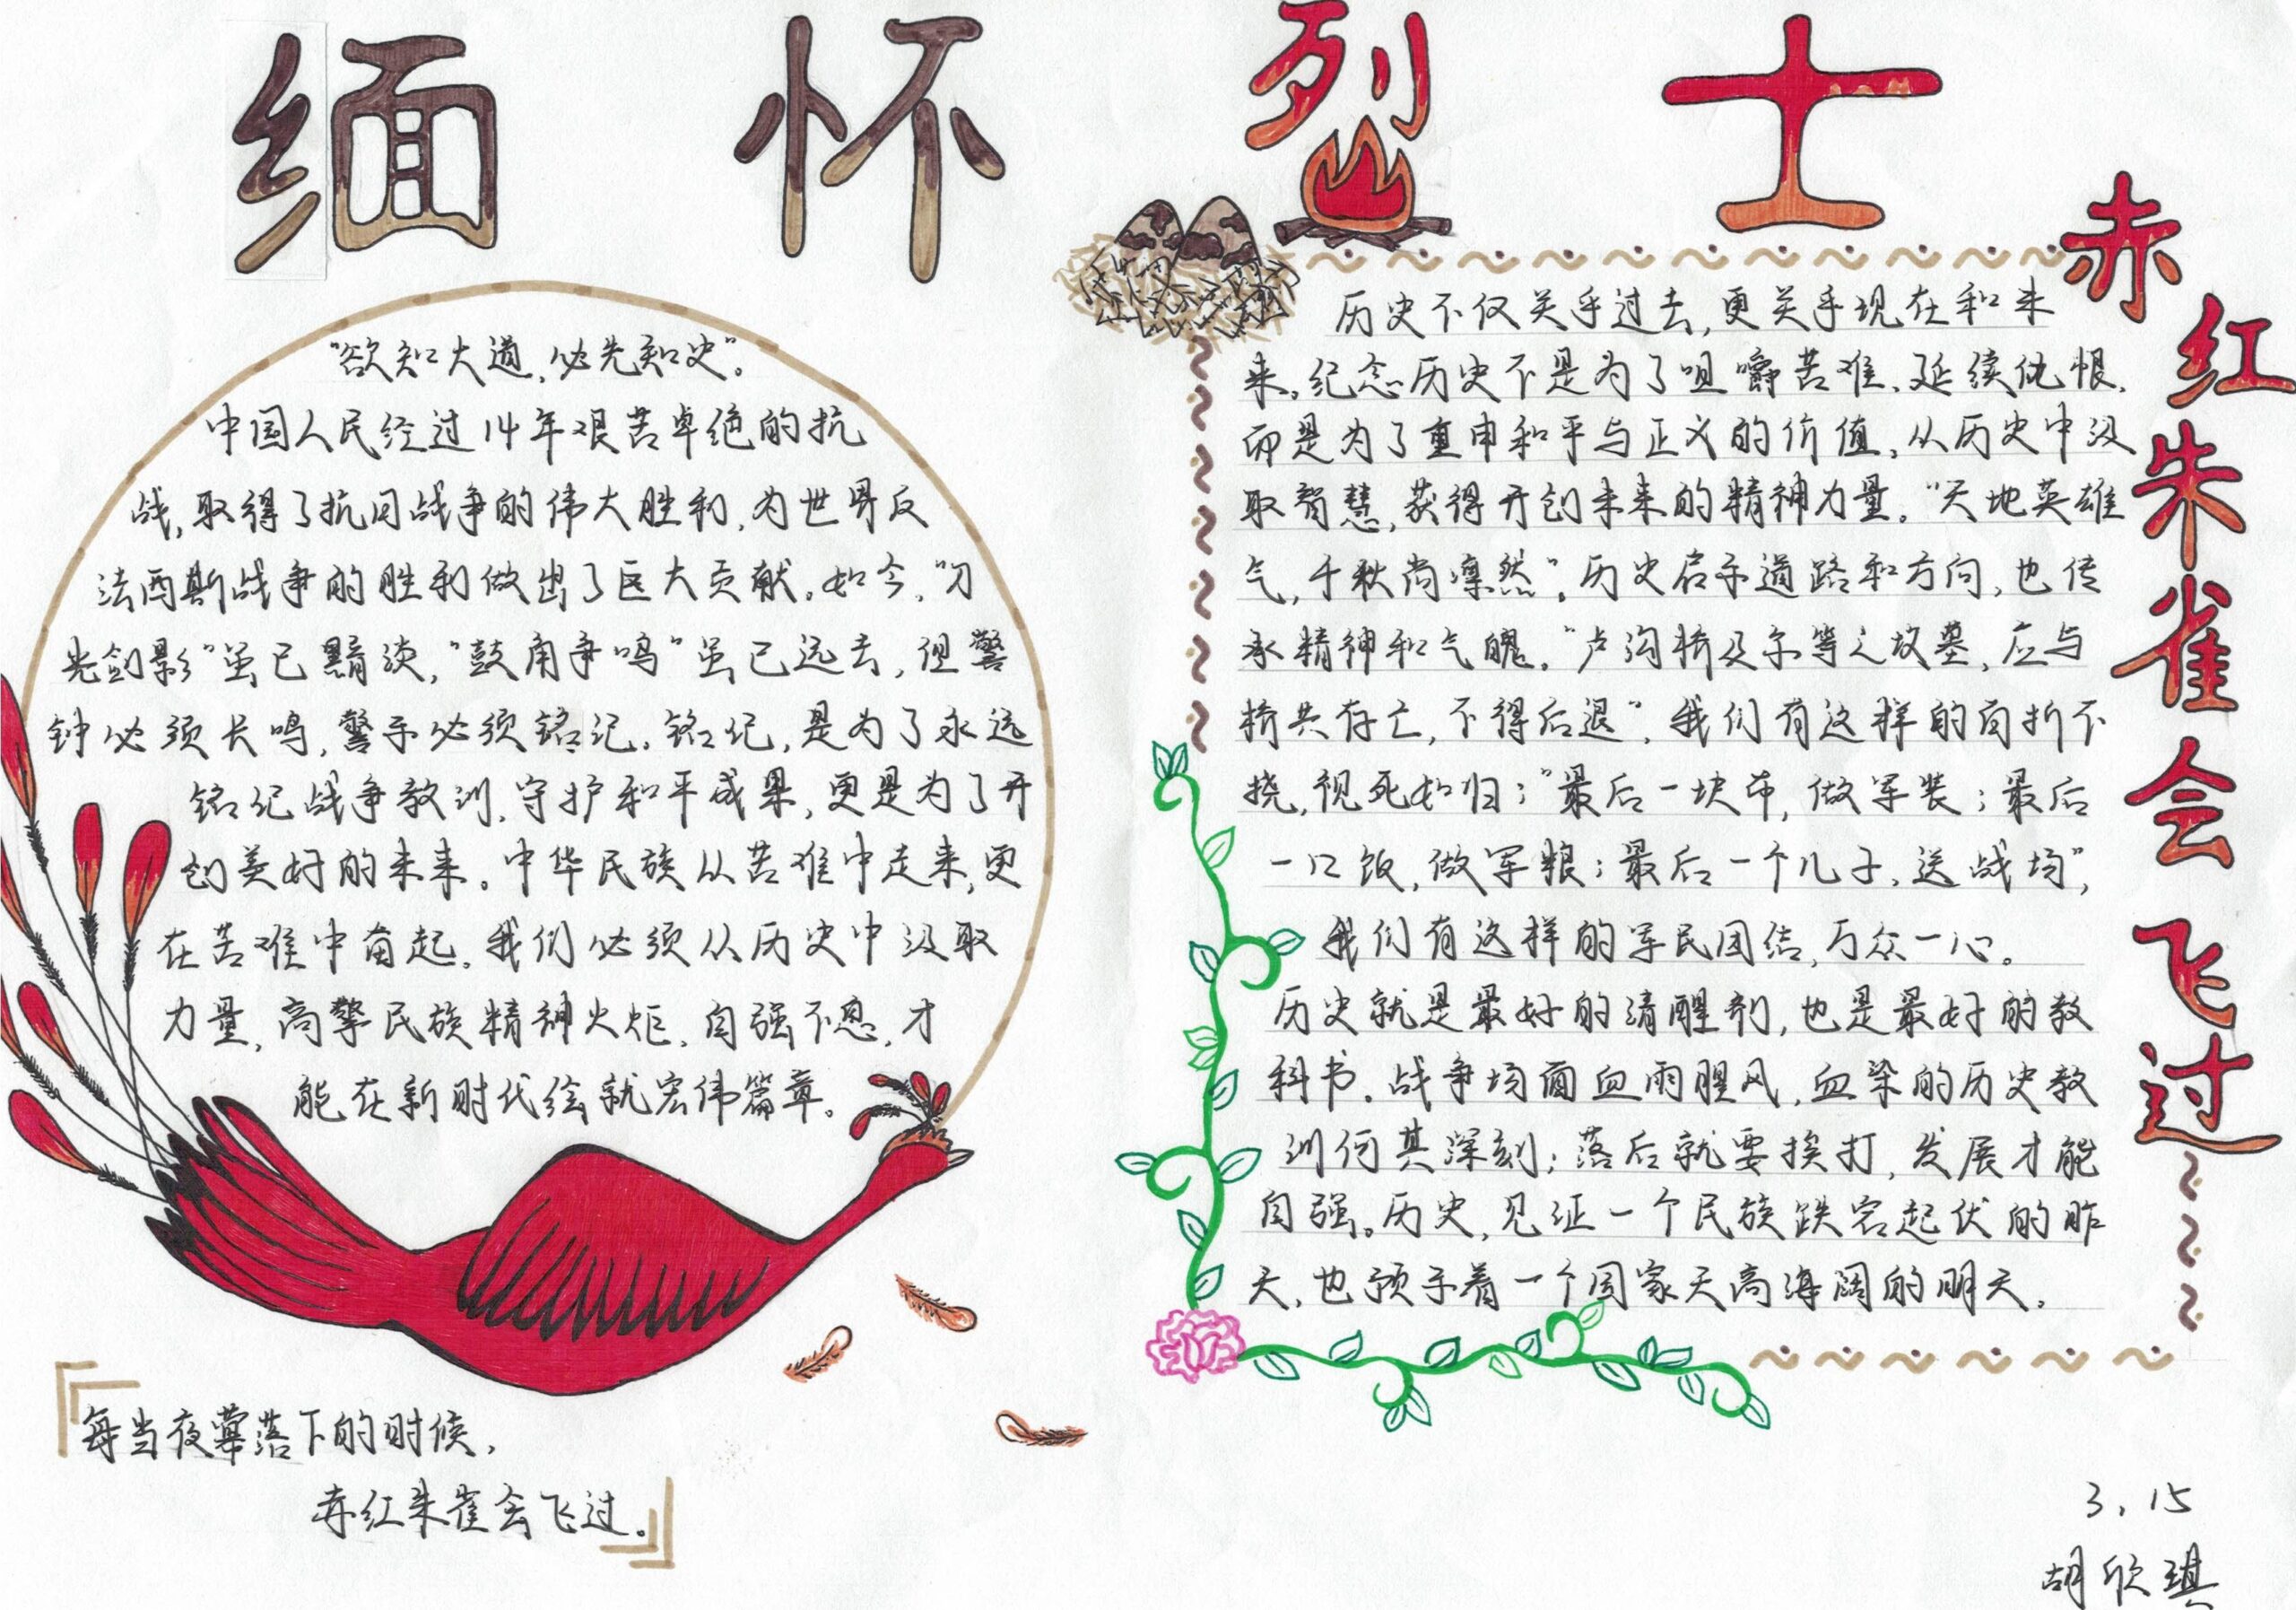 缅怀烈士
"欲知大道,必先知史"。
中国人民经过14年艰苦卓绝的抗
战,取得了抗日战争的伟大胜利,为世界反
法西斯战争的胜利做出了巨大贡献。如今,"刀
光剑影"虽已黯淡,"鼓角争鸣"虽已远去,但警
钟必须长鸣,警示必须铭记。铭记,是为了永远
铭记战争教训,守护和平成果,更是为了开
创美好的未来。中华民族从苦难中走来,更
在苦难中奋起。我们必须从历史中汲取
力量,高擎民族精神火炬,自强不息,才
能在新时代绘就宏伟篇章。
『每当夜幕落下的时候,
赤红朱雀会飞过。』
历史不仅关乎过去,更关乎现在和未
来。纪念历史不是为了咀嚼苦难,延续仇恨,
而是为了重申和平与正义的价值,从历史中汲
取智慧,获得开创未来的精神力量。"天地英雄
气,千秋尚凛然"。历史启示道路和方向,也传
承精神和气魄。"卢沟桥及尔等之坟墓,应与
桥共存亡,不得后退",我们有这样的百折不
挠,视死如归;"最后一块布,做军装;最后
一口饭,做军粮;最后一个儿子,送战场",
我们有这样的军民团结,万众一心。
历史就是最好的清醒剂,也是最好的教
科书。战争场面血雨腥风,血染的历史教
训何其深刻;落后就要挨打,发展才能
自强。历史,见证一个民族跌宕起伏的昨
天,也预示着一个国家天高海阔的明天。
赤红朱雀会飞过
3.15
胡欣琪